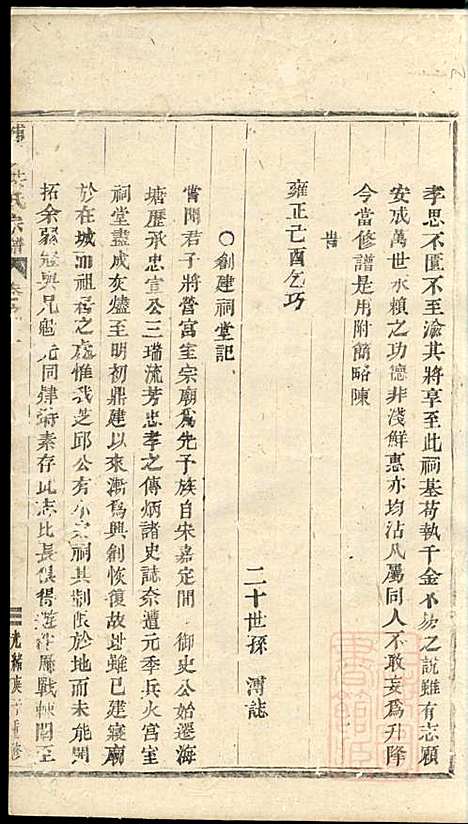 孝思不匱不至淪其將享至此祠基苟執千金不易之說雖有志願
安成萬世永賴之功德非淺鮮惠亦均沾凡屬同人不敢妄爲升降
今當修譜是用附簡略陳
雍正己酉乞巧
二十世孫 溥誌
〇創建祠堂記
嘗聞君子將營宮室宗廟爲先予族自宋嘉定間 御史公始遷海
塘歷承忠宣公三瑞流芳忠孝之傳炳諸史誌奈遭元季兵火宮室
祠堂盡成灰燼至明初鼎建以來漸爲興創恢復故址雖已建寢廟
於在城加祖居之處惟我芝邱公有小宗祠其制限於地而未能開
拓余弱冠與兄 元同肄 素存此志比長 戰 闈至
宗譜
光緒庚 重修